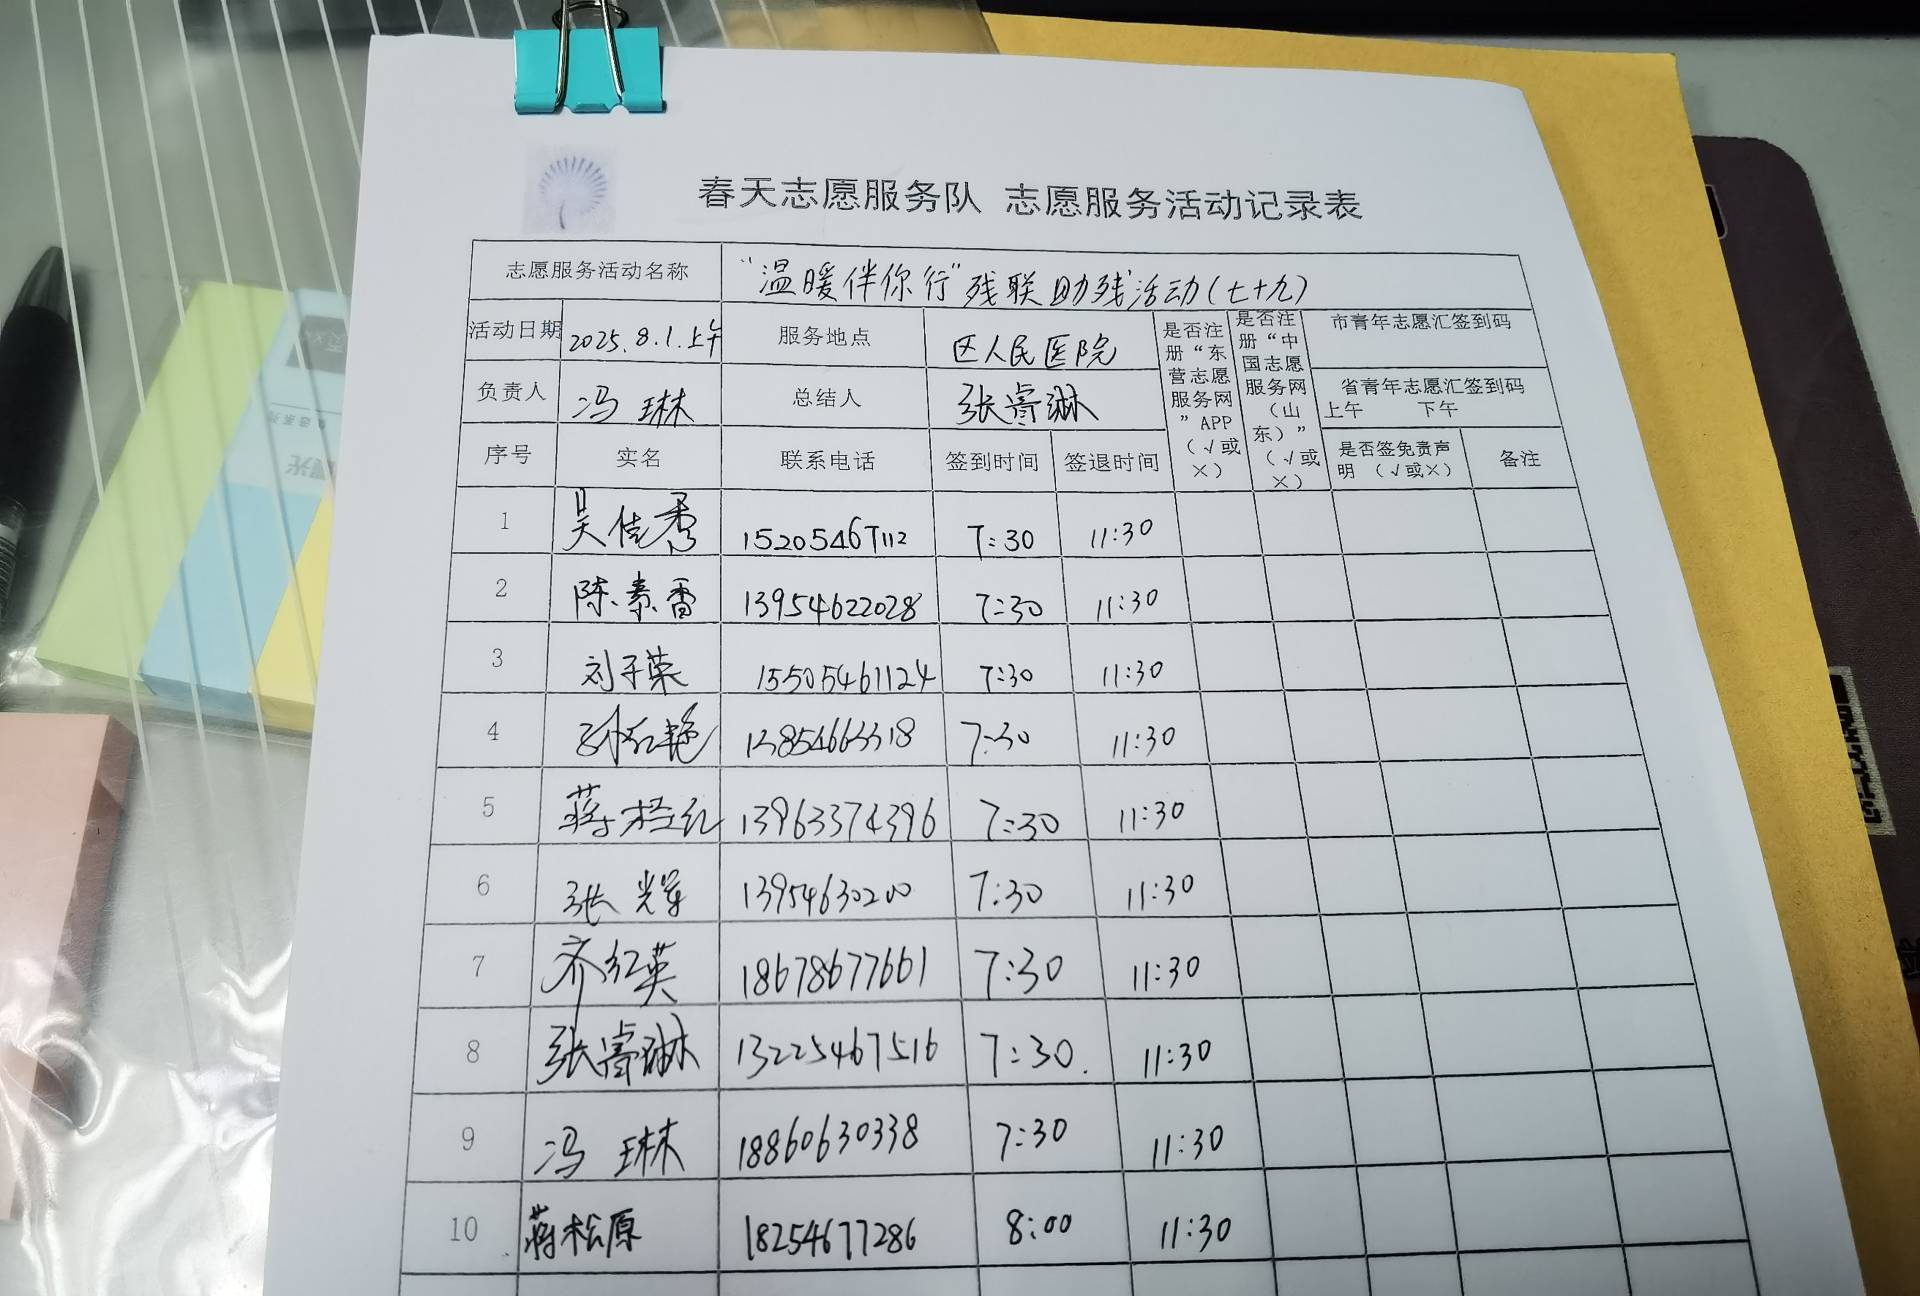 春天志愿服务队 志愿服务活动记录表
志愿服务活动名称 “温暖伴你行”残联助残活动(七十九)
活动日期 2025.8.1.上午 服务地点 区人民医院 是否注册“东营志愿服务网”APP（√或×） 是否注册“中国志愿服务网（山东）”（√或×） 市青年志愿汇签到码
负责人 冯琳 总结人 张睿琳 省青年志愿汇签到码 上午 下午
序号 实名 联系电话 签到时间 签退时间 是否签免责声明（√或×） 备注
1 吴佳秀 15205467112 7:30 11:30
2 陈素雷 13954622028 7:30 11:30
3 刘子荣 15505461124 7:30 11:30
4 孙红艳 13854663318 7:30 11:30
5 蒋桂红 13963374396 7:30 11:30
6 张辉 13954630200 7:30 11:30
7 齐红英 18678677661 7:30 11:30
8 张睿琳 13225467516 7:30. 11:30
9 冯琳 18860630338 7:30 11:30
10 蒋松原 18254677286 8:00 11:30